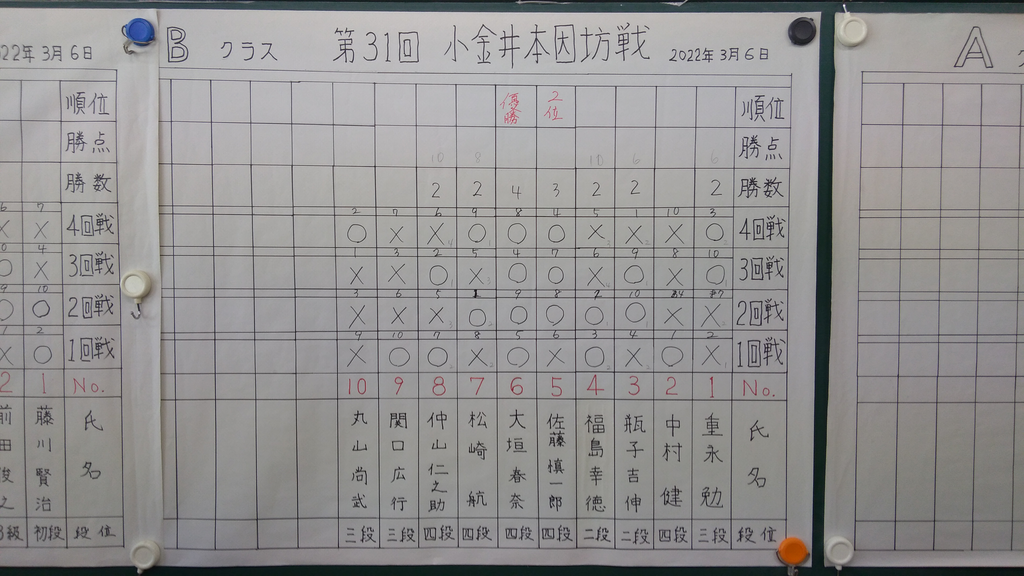 2022年3月6日
順位
勝点
勝数
4回戦
3回戦
2回戦
1回戦
2 1 No.
藤川賢治 氏名
初段 段位
B クラス 第31回 小金井本因坊戦 2022年3月6日
優勝 2位 順位
10 8 10 6 6 勝点
2 2 4 3 2 2 2 勝数
2 7 6 9 8 4 5 1 10 3
○ × × ○ ○ ○ × × × ○ 4回戦
1 3 2 5 4 7 6 9 8 10
× × ○ × ○ ○ × ○ × ○ 3回戦
3 6 5 1 9 8 2 10 4 7
× × × ○ ○ ○ ○ ○ × × 2回戦
9 10 7 8 5 6 3 4 1 2
× ○ ○ × ○ × ○ × ○ × 1回戦
10 9 8 7 6 5 4 3 2 1 No.
丸山尚武 関口広行 仲山仁之助 松崎航 大垣春奈 佐藤慎一郎 福島幸徳 瓶子吉伸 中村健 重永勉 氏名
三段 三段 四段 四段 四段 四段 二段 二段 四段 三段 段位
A